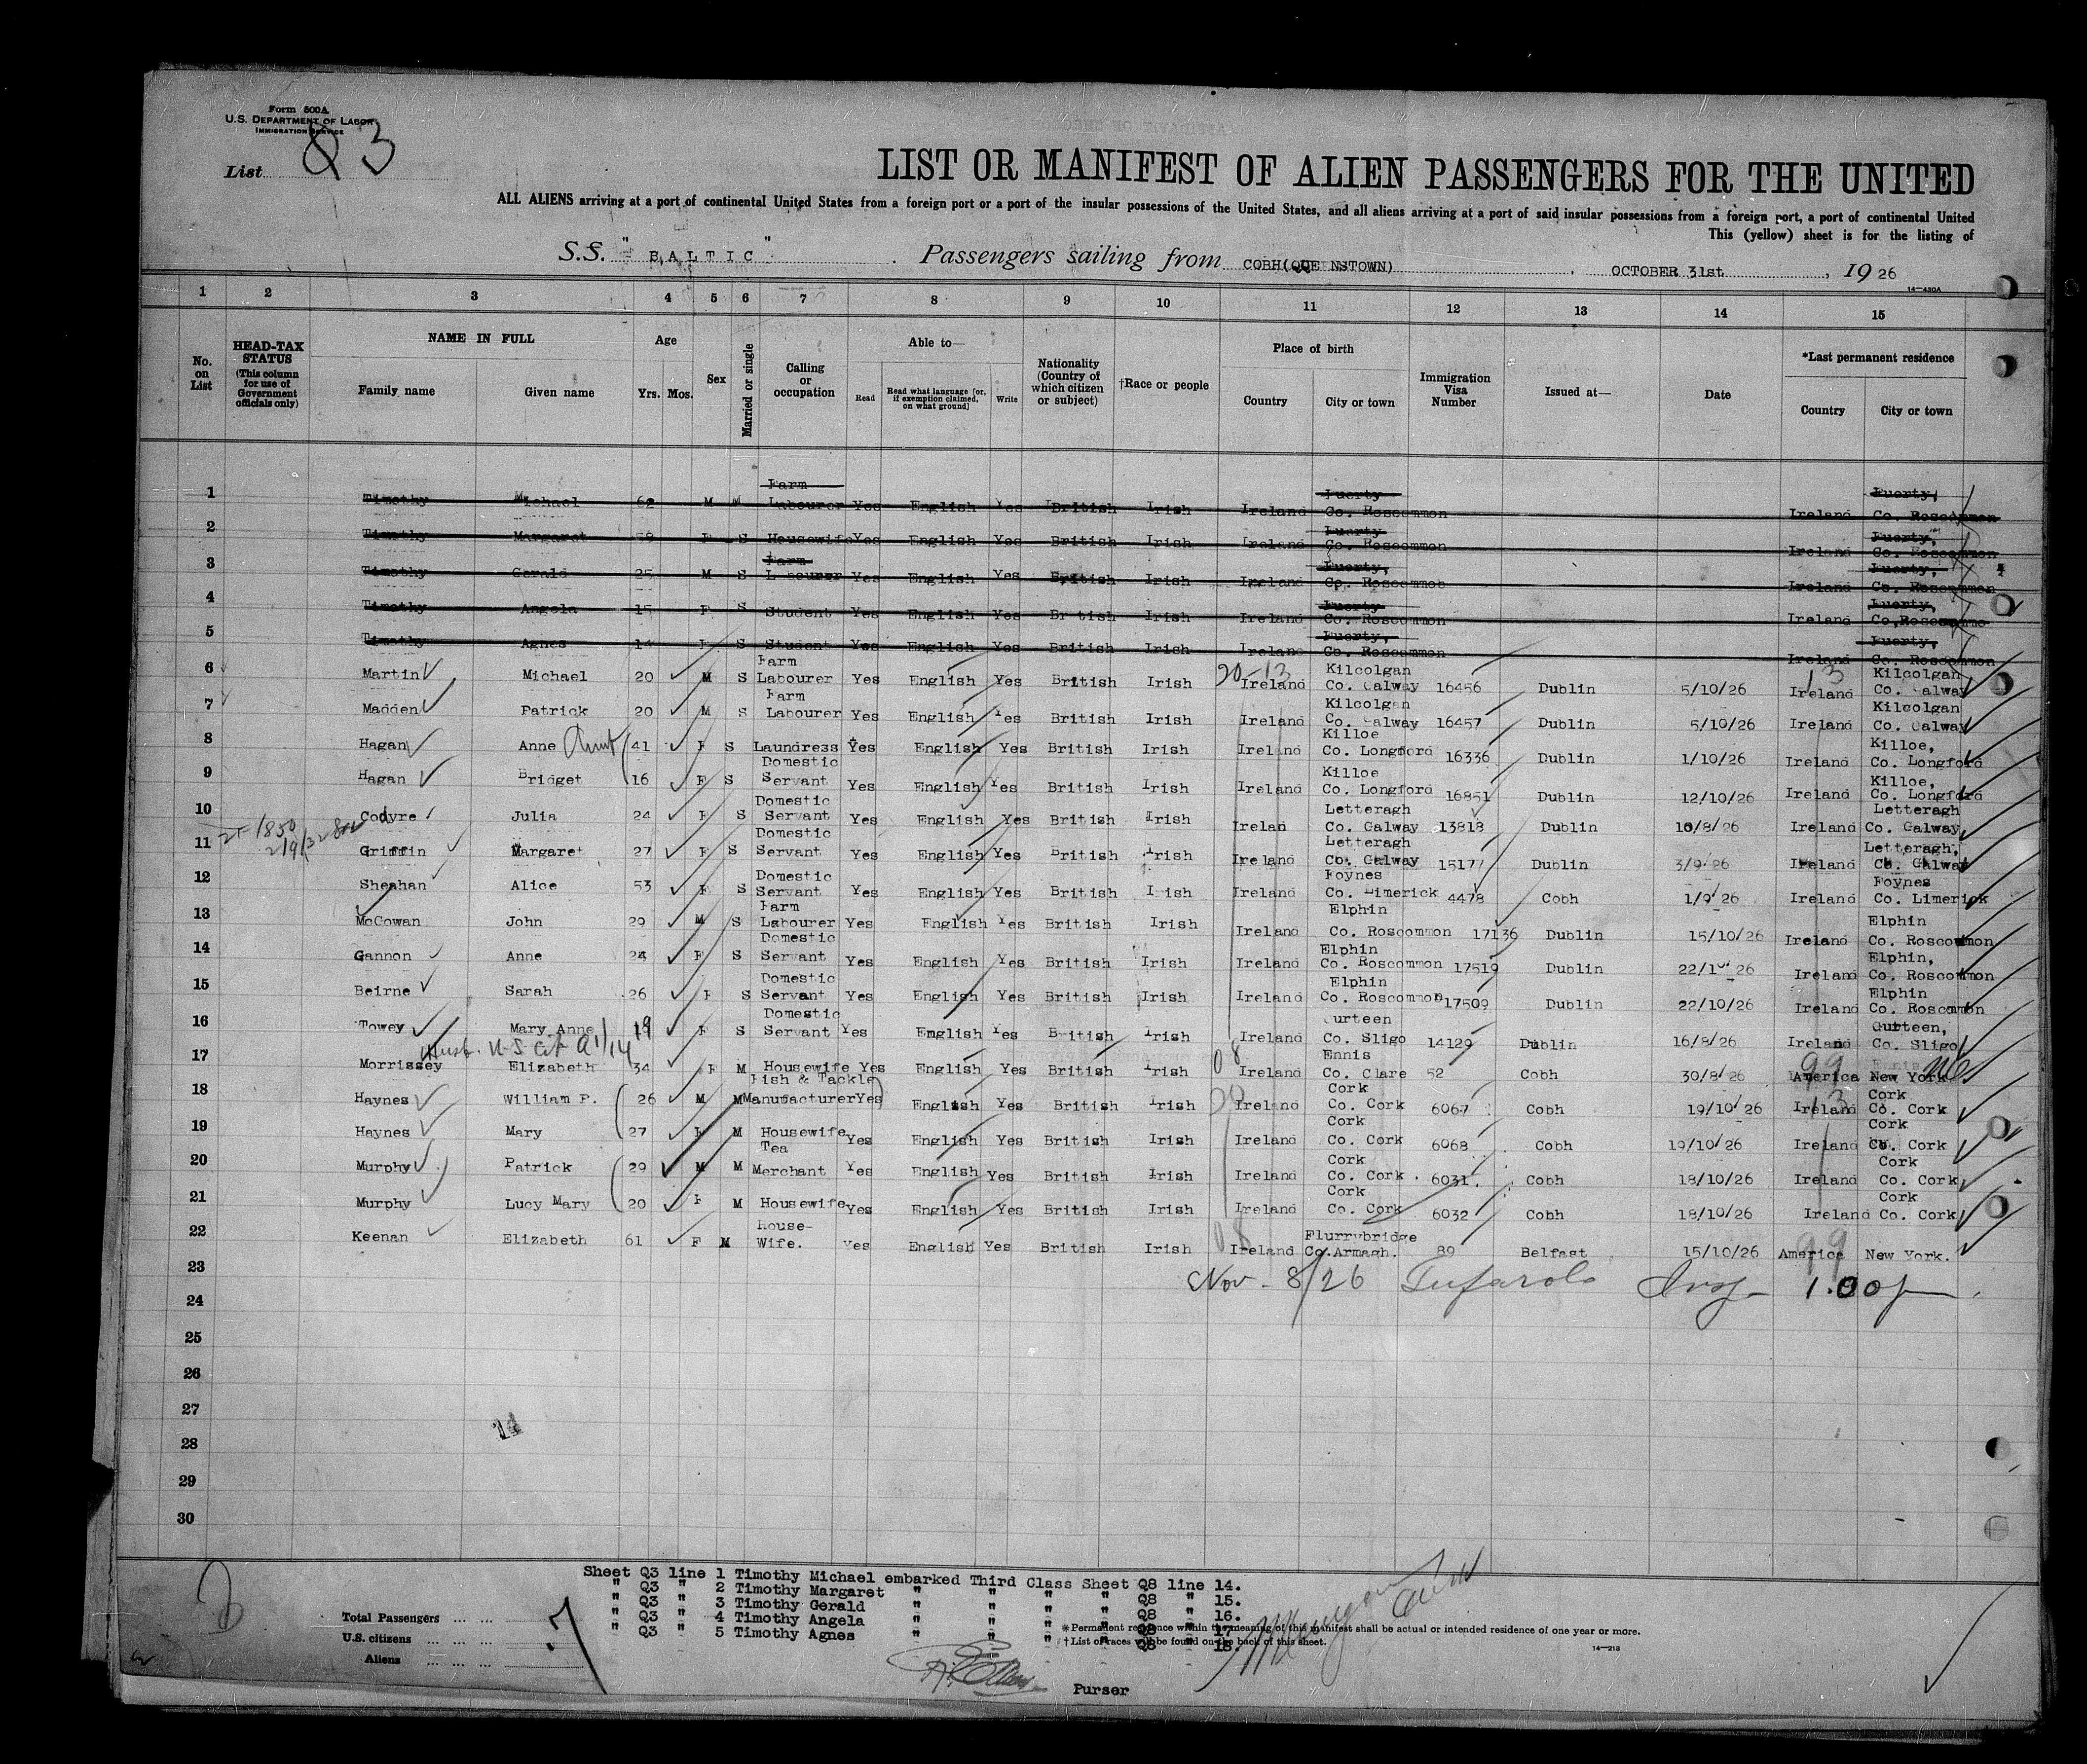 Form 500A
U.S. DEPARTMENT OF LABOR
IMMIGRATION SERVICE
List Q 3
LIST OR MANIFEST OF ALIEN PASSENGERS FOR THE UNITED
ALL ALIENS arriving at a port of continental United States from a foreign port or a port of the insular possessions of the United States, and all aliens arriving at a port of said insular possessions from a foreign port, a port of continental United
This (yellow) sheet is for the listing of
S.S. "BALTIC" Passengers sailing from COBH(QUEENSTOWN), OCTOBER 31st, 19 26
14—430A
1 2 3 4 5 6 7 8 9 10 11 12 13 14 15
No. on List
HEAD-TAX STATUS (This column for use of Government officials only)
NAME IN FULL Family name Given name
Age Yrs. Mos.
Sex
Married or single
Calling or occupation
Able to— Read Read what language [or, if exemption claimed, on what ground] Write
Nationality (Country of which citizen or subject)
†Race or people
Place of birth Country City or town
Immigration Visa Number
Issued at—
Date
*Last permanent residence Country City or town
1 Timothy Michael 62 M M Farm Labourer Yes English Yes British Irish Ireland Fuerty Co. Roscommon Ireland Fuerty, Co. Roscommon
2 Timothy Margaret 59 F S Housewife Yes English Yes British Irish Ireland Fuerty Co. Roscommon Ireland Fuerty, Co. Roscommon
3 Timothy Gerald 25 M S Farm Labourer Yes English Yes British Irish Ireland Fuerty, Co. Roscommon Ireland Fuerty, Co. Roscommon
4 Timothy Angela 15 F S Student Yes English Yes British Irish Ireland Fuerty Co. Roscommon Ireland Fuerty, Co. Roscommon
5 Timothy Agnes 14 F S Student Yes English Yes British Irish Ireland Fuerty, Co. Roscommon Ireland Fuerty, Co. Roscommon
6 Martin Michael 20 M S Farm Labourer Yes English Yes British Irish 20-13 Ireland Kilcolgan Co. Galway 16456 Dublin 5/10/26 13 Ireland Kilcolgan Co. Galway
7 Madden Patrick 20 M S Farm Labourer Yes English Yes British Irish Ireland Kilcolgan Co. Galway 16457 Dublin 5/10/26 Ireland Kilcolgan Co. Galway
8 Hagan Anne Aunt 41 F S Laundress Yes English Yes British Irish Ireland Killoe Co. Longford 16336 Dublin 1/10/26 Ireland Killoe, Co. Longford
9 Hagan Bridget 16 F S Domestic Servant Yes English Yes British Irish Ireland Killoe Co. Longford 16851 Dublin 12/10/26 Ireland Killoe, Co. Longford
10 Codyre Julia 24 F S Domestic Servant Yes English Yes British Irish Irelan Letteragh Co. Galway 13818 Dublin 10/8/26 Ireland Letteragh Co. Galway
2T-1850 2/9/32
11 Griffin Margaret 27 F S Domestic Servant Yes English Yes British Irish Ireland Letteragh Co. Galway 15177 Dublin 3/9/26 Ireland Letteragh, Co. Galway
12 Sheahan Alice 53 F S Domestic Servant Yes English Yes British Irish Ireland Foynes Co. Limerick 4478 Cobh 1/9/26 Ireland Foynes Co. Limerick
13 McGowan John 29 M S Farm Labourer Yes English Yes British Irish Ireland Elphin Co. Roscommon 17136 Dublin 15/10/26 Ireland Elphin Co. Roscommon
14 Gannon Anne 24 F S Domestic Servant Yes English Yes British Irish Ireland Elphin Co. Roscommon 17519 Dublin 22/10/26 Ireland Elphin, Co. Roscommon
15 Beirne Sarah 26 F S Domestic Servant Yes English Yes British Irish Ireland Elphin Co. Roscommon 17509 Dublin 22/10/26 Ireland Elphin Co. Roscommon
16 Towey Mary Anne 19 F S Domestic Servant Yes English Yes British Irish Ireland Gurteen Co. Sligo 14129 Dublin 16/8/26 Ireland Gurteen, Co. Sligo
Husb. U-S Cit
17 Morrissey Elizabeth 34 F M Housewife Yes English Yes British Irish 08 Ireland Ennis Co. Clare 52 Cobh 30/8/26 99 America New York
18 Haynes William P. 26 M M Fish & Tackle Manufacturer Yes English Yes British Irish Ireland Cork Co. Cork 6067 Cobh 19/10/26 13 Ireland Cork Co. Cork
19 Haynes Mary 27 F M Housewife Yes English Yes British Irish Ireland Cork Co. Cork 6068 Cobh 19/10/26 Ireland Cork Co. Cork
20 Murphy Patrick 29 M M Tea Merchant Yes English Yes British Irish Ireland Cork Co. Cork 6031 Cobh 18/10/26 Ireland Cork Co. Cork
21 Murphy Lucy Mary 20 F M Housewife Yes English Yes British Irish Ireland Cork Co. Cork 6032 Cobh 18/10/26 Ireland Cork Co. Cork
22 Keenan Elizabeth 61 F M House-Wife. Yes English Yes British Irish 08 Ireland Flurrybridge Co.Armagh. 89 Belfast 15/10/26 99 America New York.
23 Nov - 8/26 Insp 1.00 p
24
25
26
27
28
29
30
Sheet Q3 line 1 Timothy Michael embarked Third Class Sheet Q8 line 14.
" Q3 " 2 Timothy Margaret " " " " Q8 " 15.
" Q3 " 3 Timothy Gerald " " " " Q8 " 16.
" Q3 " 4 Timothy Angela " " " " Q8 " 17.
" Q3 " 5 Timothy Agnes " " " " Q8 " 18.
Total Passengers
U.S. citizens
Aliens
*Permanent residence within the meaning of this manifest shall be actual or intended residence of one year or more.
†List of races will be found on the back of this sheet.
14—213
Purser